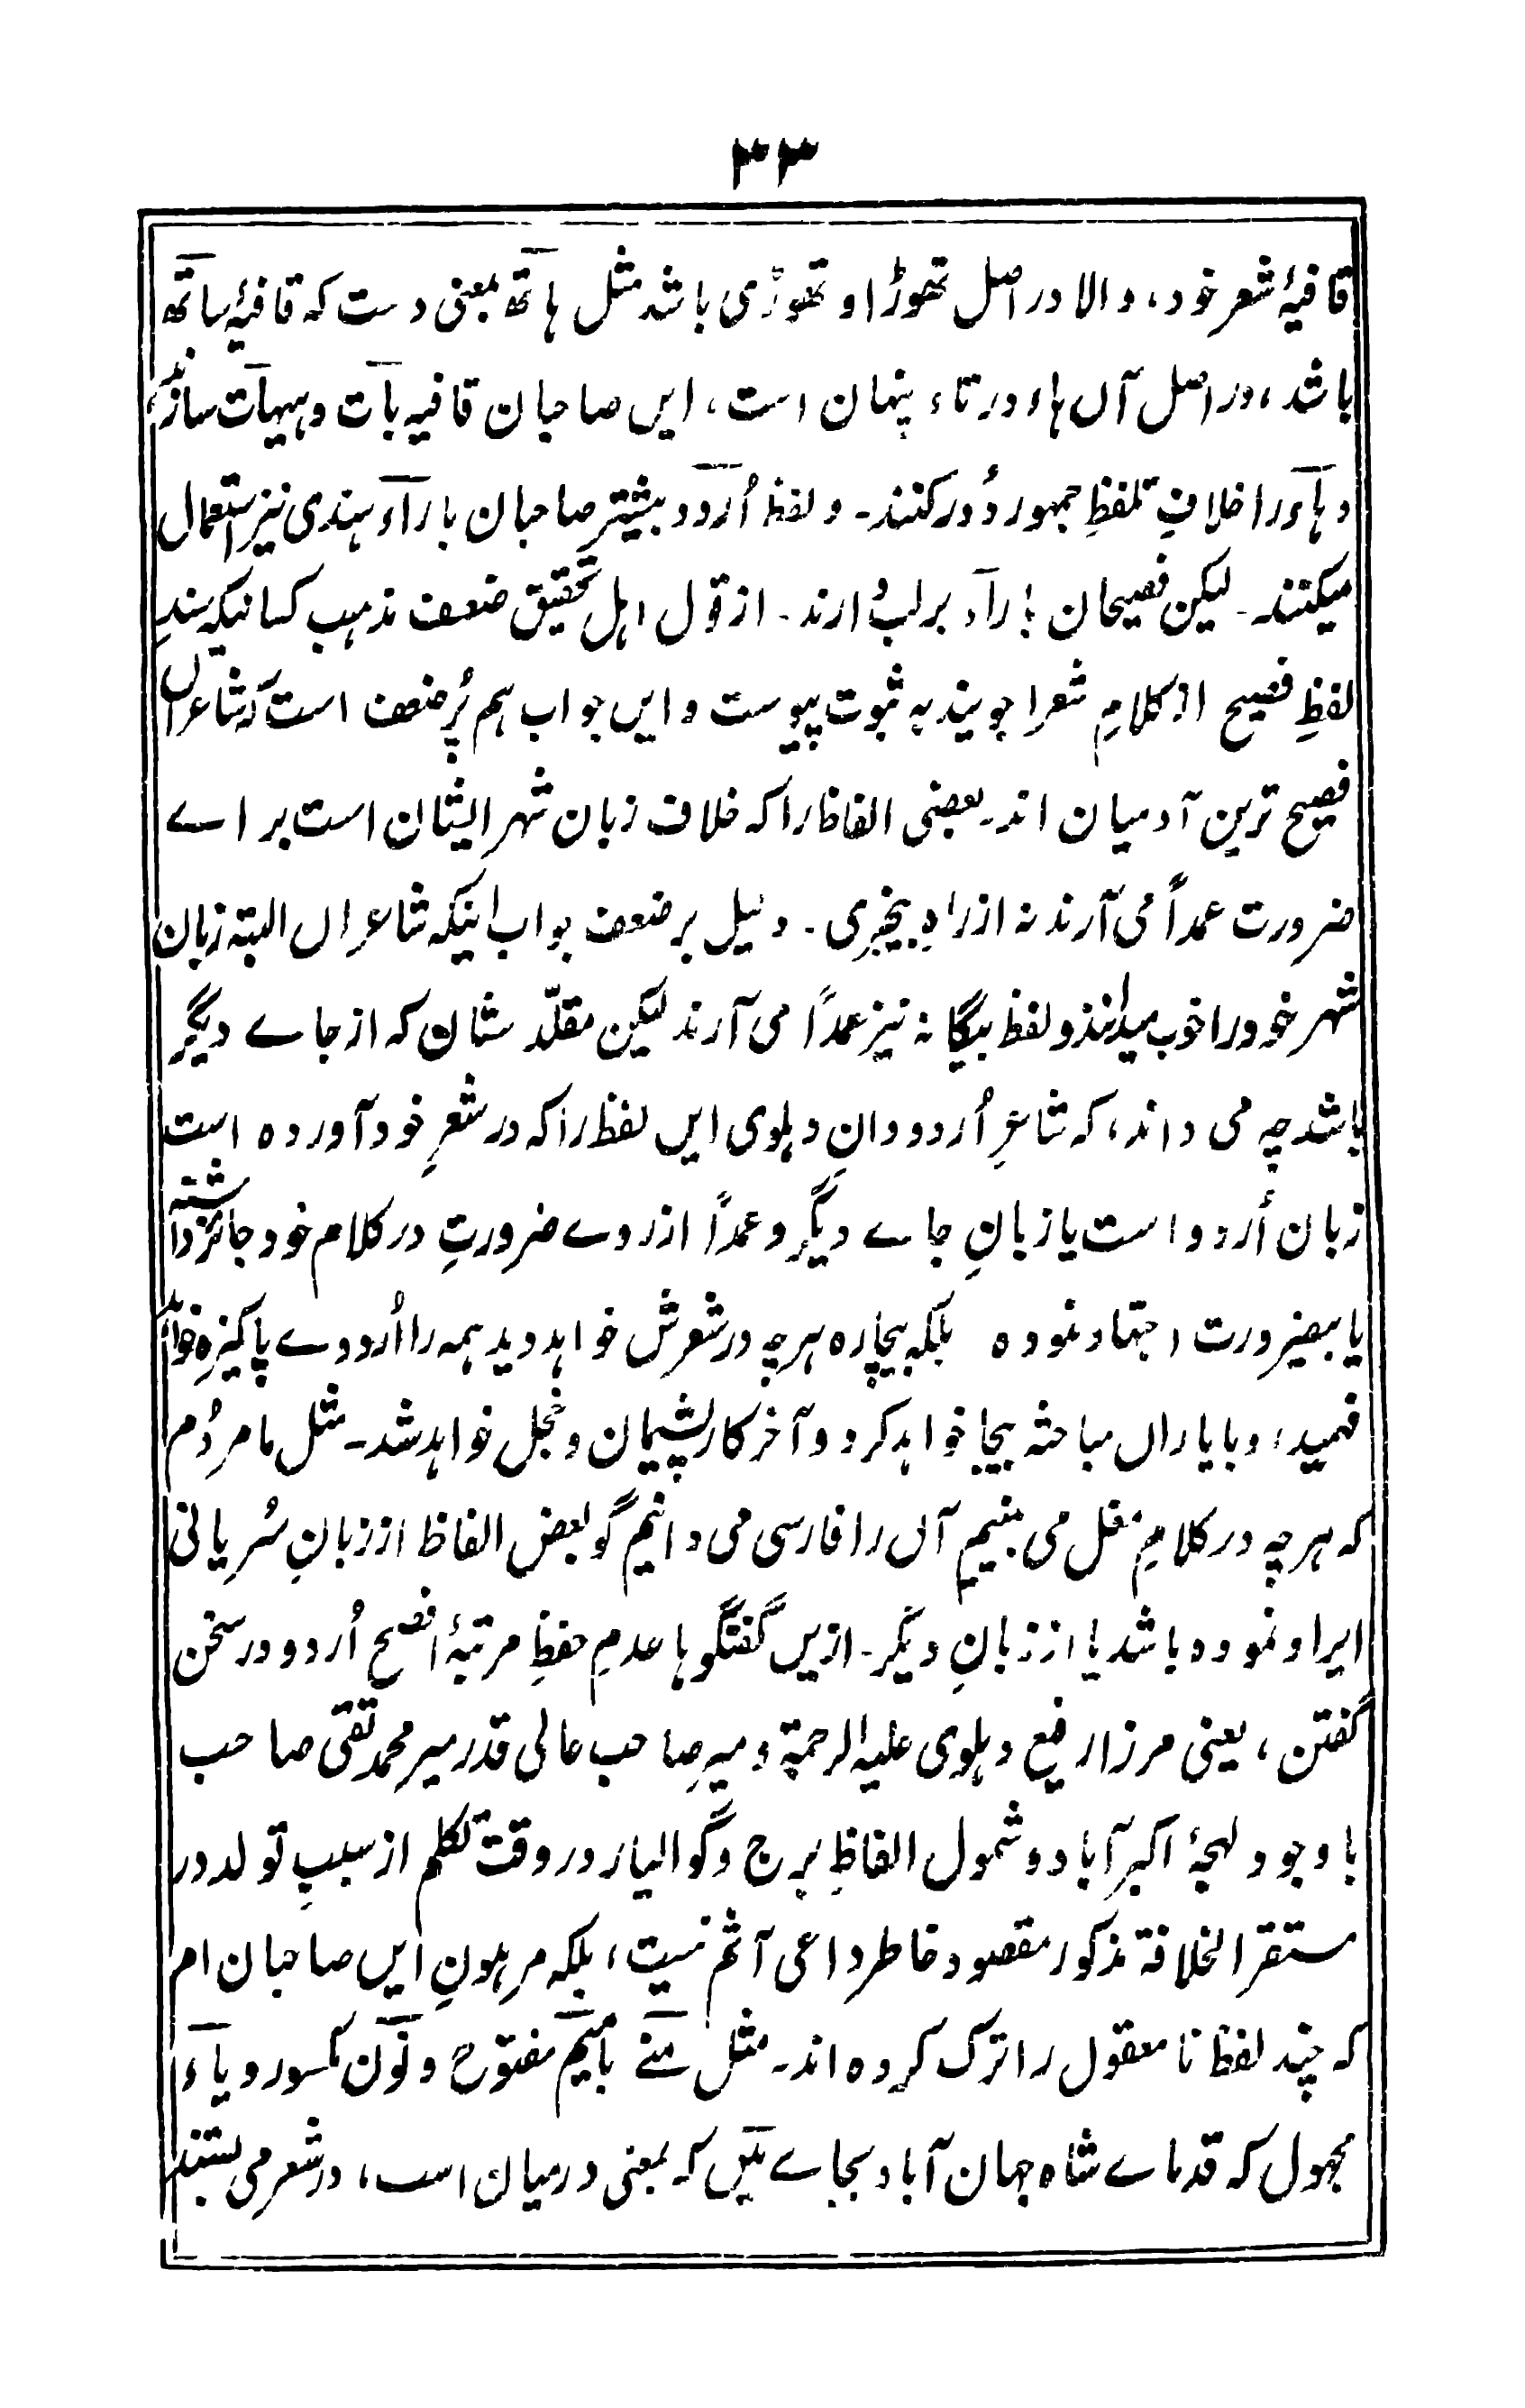 ۳۳
قافیۂ شعر خود، والا در اصل تھوڑا و تھوڑی باشد مثل ہاتھ بمعنی دست کہ قافیۂ ساتھ
باشد، در اصل آں ہاء در تاء پنہان است، ایں صاحبان قافیہ بات و ہیہات سازند
و ہاء را خلافِ تلفظِ جمہور دُور کنند۔ و لفظ اُردو بیشتر صاحبان با راء ہندی نیز استعمال
میکنند۔ لیکن فصیحان با راء بر لب دارند۔ از قول اہل تحقیق ضعف مذہب کسانیکہ سندِ
لفظِ فصیح از کلامِ شعرا جویند بہ ثبوت پیوست و ایں جواب ہم پُر ضعف است کہ شاعراں
فصیح ترین آدمیان اند۔ بعضی الفاظ را کہ خلاف زبان شہر ایشان است براے
ضرورت عمداً می آرند نہ از راہِ بیخبری۔ دلیل بر ضعف جواب اینکہ شاعراں البتہ زبان
شہر خود را خوب میدانند و لفظ بیگانہ نیز عمداً می آرند لیکن مقلّد شان کہ از جاے دیگر
باشد چہ می داند، کہ شاعرِ اُردو دانِ دہلوی ایں لفظ را کہ در شعرِ خود آوردہ است
زبان اُردو است یا زبانِ جاے دیگر و عمداً از روے ضرورتِ در کلام خود جائز داشتہ
یا بضرورت اجتہاد نمودہ بلکہ بیچارہ ہر چہ در شعرش خواہد دید ہمہ را اُردوے پاکیزہ خواہد
فہمید، و با یاراں مباحثہ بیجا خواہد کرد و آخر کار پشیمان و خجل خواہد شد۔ مثل ما مردُم
کہ ہر چہ در کلامِ مغل می بینیم آں را فارسی می دانیم گو بعض الفاظ از زبانِ سُریانی
ایراد نمودہ باشد یا از زبانِ دیگر۔ ازیں گفتگوہا عدمِ حفظِ مرتبۂ افصح اُردو در سخن
گفتن، یعنی مرزا رفیع دہلوی علیہ الرحمۃ و میر صاحب عالی قدر میر محمد تقی صاحب
با وجود لہجۂ اکبر آباد و شمول الفاظِ برج و گوالیار در وقت تکلم از سببِ تولد در
مستقر الخلافۃ مذکور مقصود خاطر داعی آثم نیست، بلکہ مرہونِ ایں صاحبان ام
کہ چند لفظ نا معقول را ترک کردہ اند۔ مثل منے بامیم مفتوح و نون مکسور و یاء
مجہول کہ قدماے شاہ جہان آباد بجاے میں کہ بمعنی درمیان است، در شعر می بستند